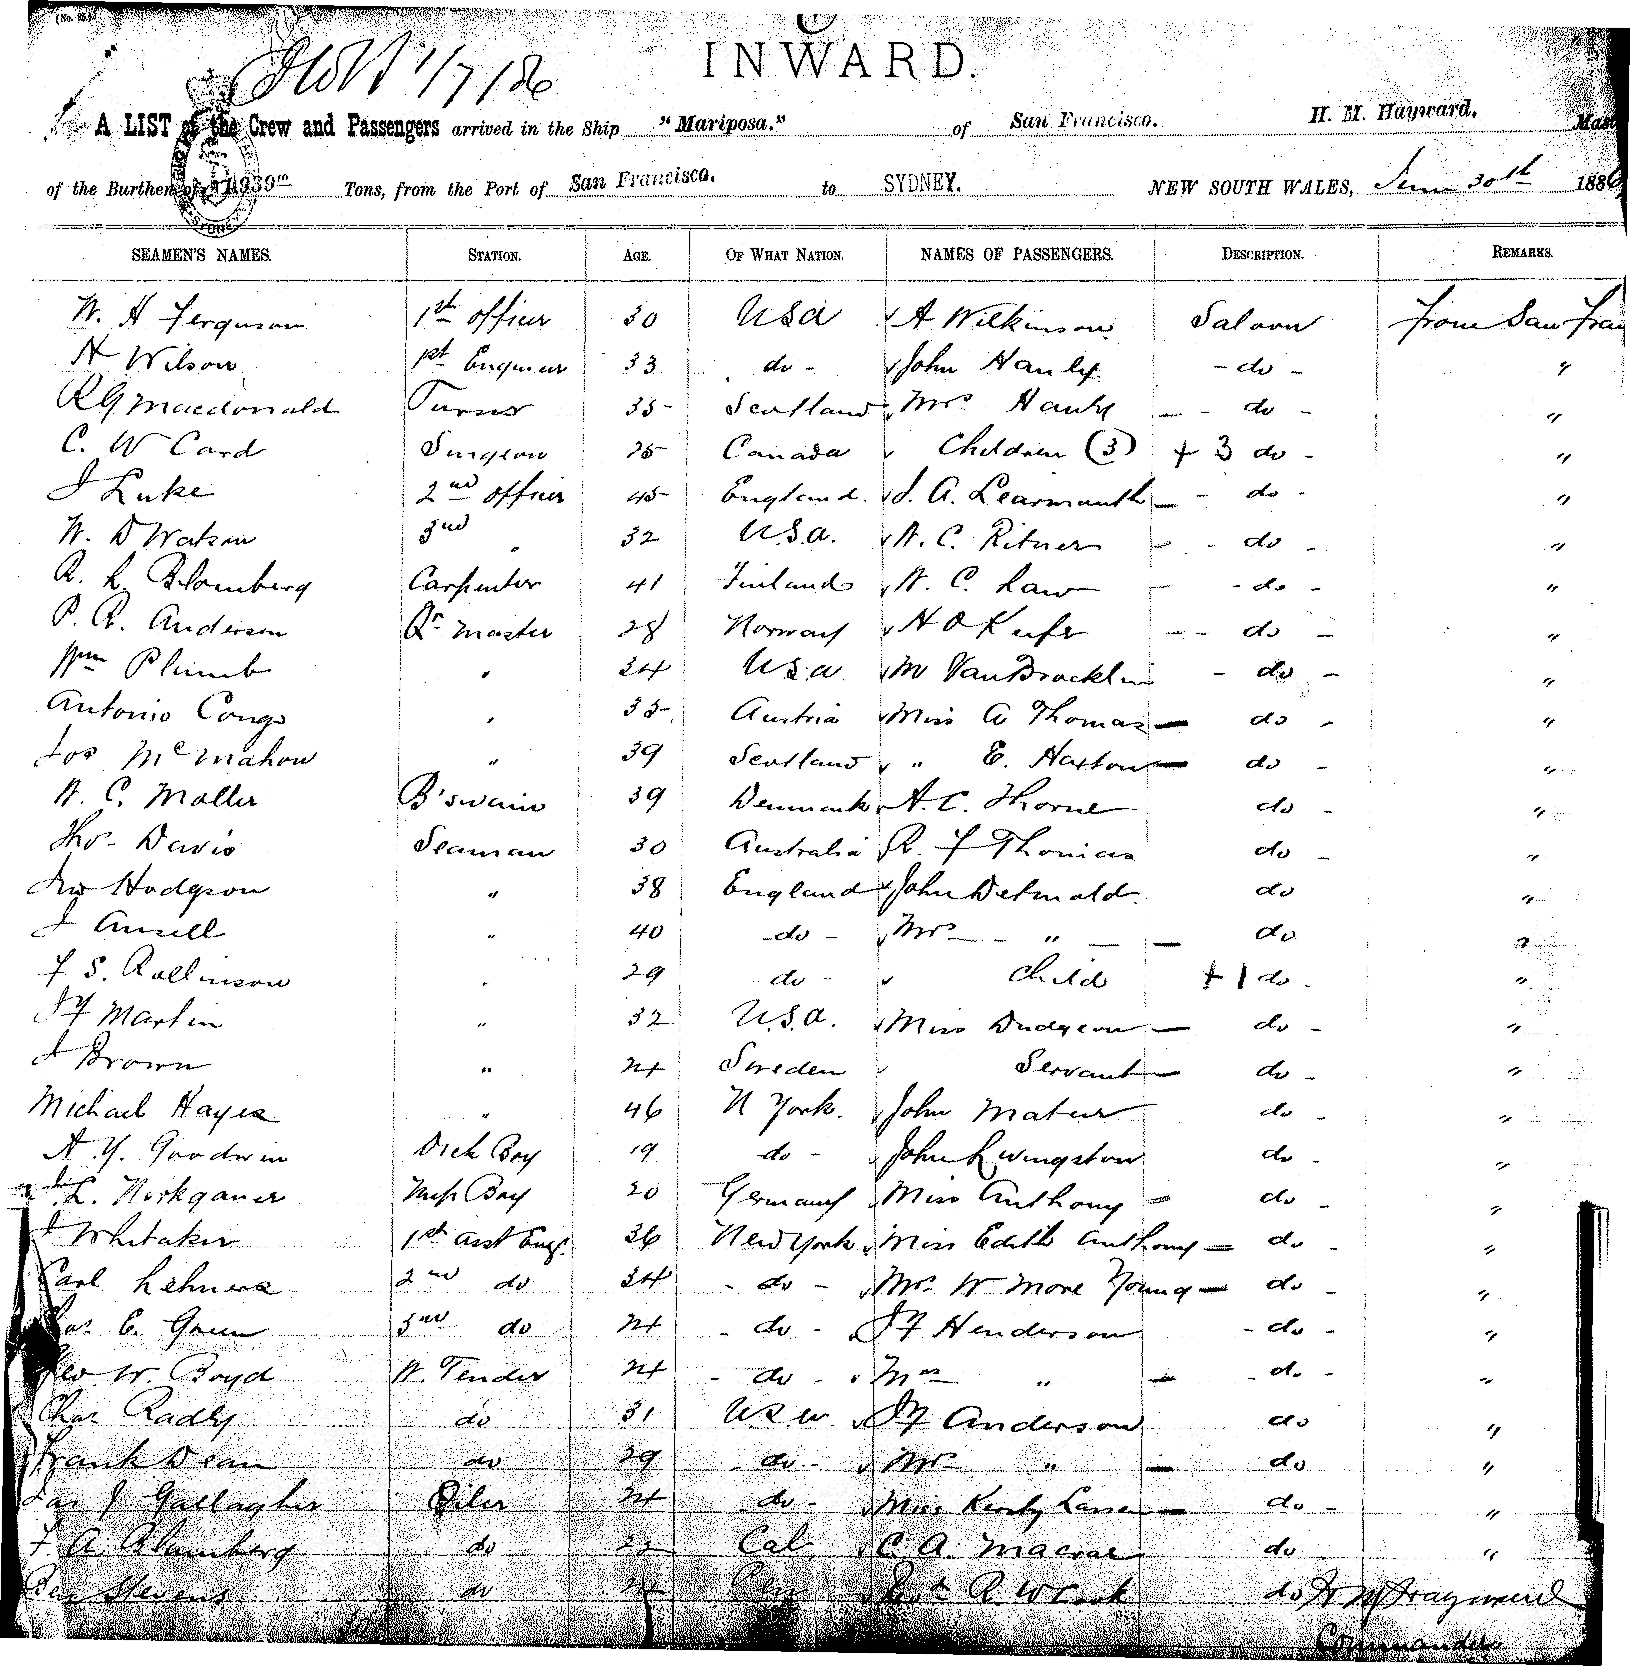 INWARD.
1/7/86
A LIST of the Crew and Passengers arrived in the Ship "Mariposa." of San Francisco. H. M. Hayward,
of the Burthen of 1939 Tons, from the Port of San Francisco. to SYDNEY. NEW SOUTH WALES, June 30th 1886
SEAMEN'S NAMES. STATION. AGE. OF WHAT NATION. NAMES OF PASSENGERS. DESCRIPTION. REMARKS.
W. H Ferguson 1st officer 30 USA A Wilkinson Saloon From San Fran
H Wilson 1st Engineer 33 do - John Hanly - do - "
R G Macdonald Purser 35 Scotland Mrs Hanly - do - "
C. W Card Surgeon 25 Canada Children (3) + 3 do - "
J Luke 2nd officer 45 England. J. A. Learmonth - do - "
W. D Watson 3rd " 32 U.S.A. W. C. Ritner - do - "
R. L Blomberg Carpenter 41 Finland W. C. Law - do - "
P. R. Anderson Qr Master 28 Norway H O Keefe - do - "
Wm Plumb " 34 USA M VanBrocklin - do - "
Antonio Congo " 35 Austria Miss A Thomas - do - "
Jos McMahon " 39 Scotland " E. Haxton - do - "
W. C. Moller B'swain 39 Denmark A. C. Thorne do - "
Thos Davis Seaman 30 Australia R. F Thomas do - "
Hodgson " 38 England John Detmold do "
J Ansell " 40 - do - Mrs " - do "
F S. Rollinson " 29 do - Child + 1 do - "
J F Martin " 32 U.S.A. Miss Dudgeon - do - "
J Brown " 24 Sweden Servant - do - "
Michael Hayes " 46 N York. John do - "
A. Y. Goodwin Deck Boy 19 do - John Livingston do - "
L. Mess Boy 20 Germany Miss Anthony - do - "
J Whitaker 1st asst Engr 36 New York Miss Edith Anthony - do - "
Carl 2nd do 34 - do - Mrs W More Young - do - "
C. Green 3rd do 24 - do - J F Henderson - do - "
Geo W. Boyd W. Tender 24 - do - Mrs " - do - "
Chas Radly do 31 J F Anderson do "
Frank Dean do 29 do - Mrs " - do "
Jas J Gallagher Oiler 24 do - Miss - do - "
F A. Blomberg do Cal C. A. Macrae do "
Ben Stevens do do H M Hayward
Commander